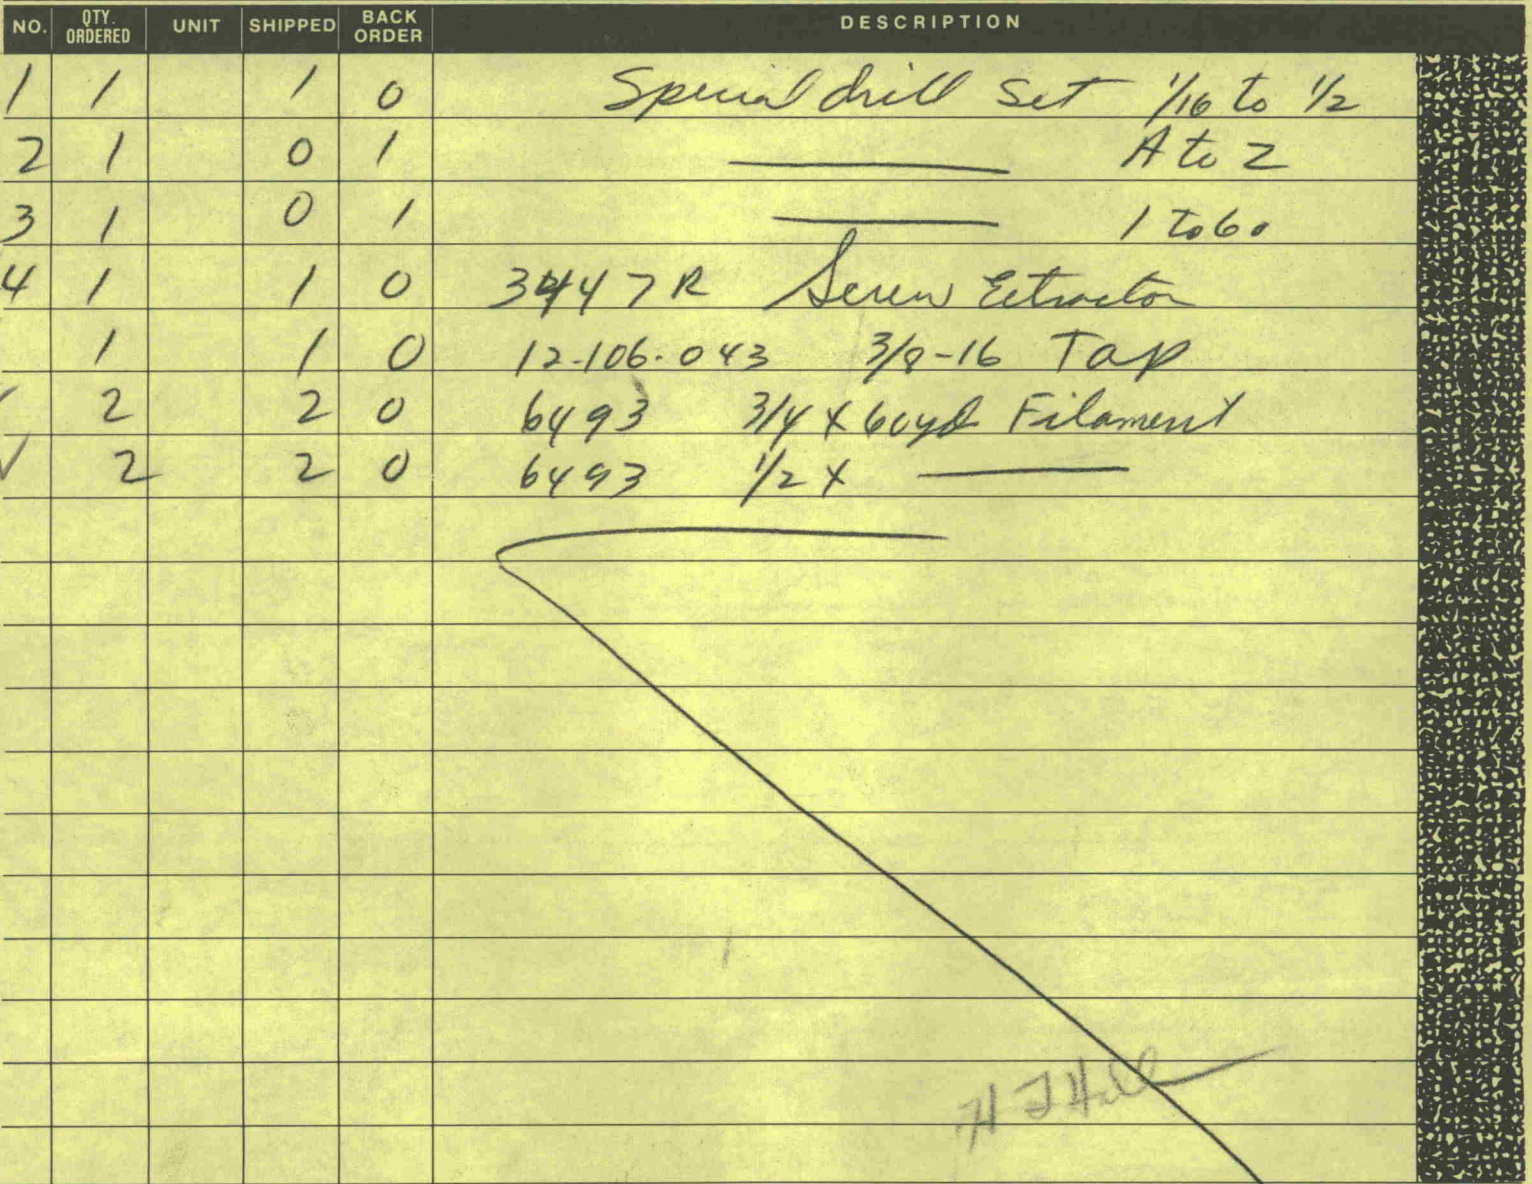 NO. QTY. ORDERED UNIT SHIPPED BACK ORDER DESCRIPTION
1 1 1 0 Special drill set 1/16 to 1/2
2 1 0 1 A to Z
3 1 0 1 1 to 60
4 1 1 0 3447R Screw Extractor
1 1 0 12-106-043 3/8-16 Tap
✓ 2 2 0 6493 3/4 x 60yd Filament
✓ 2 2 0 6493 1/2 x
H J Hill